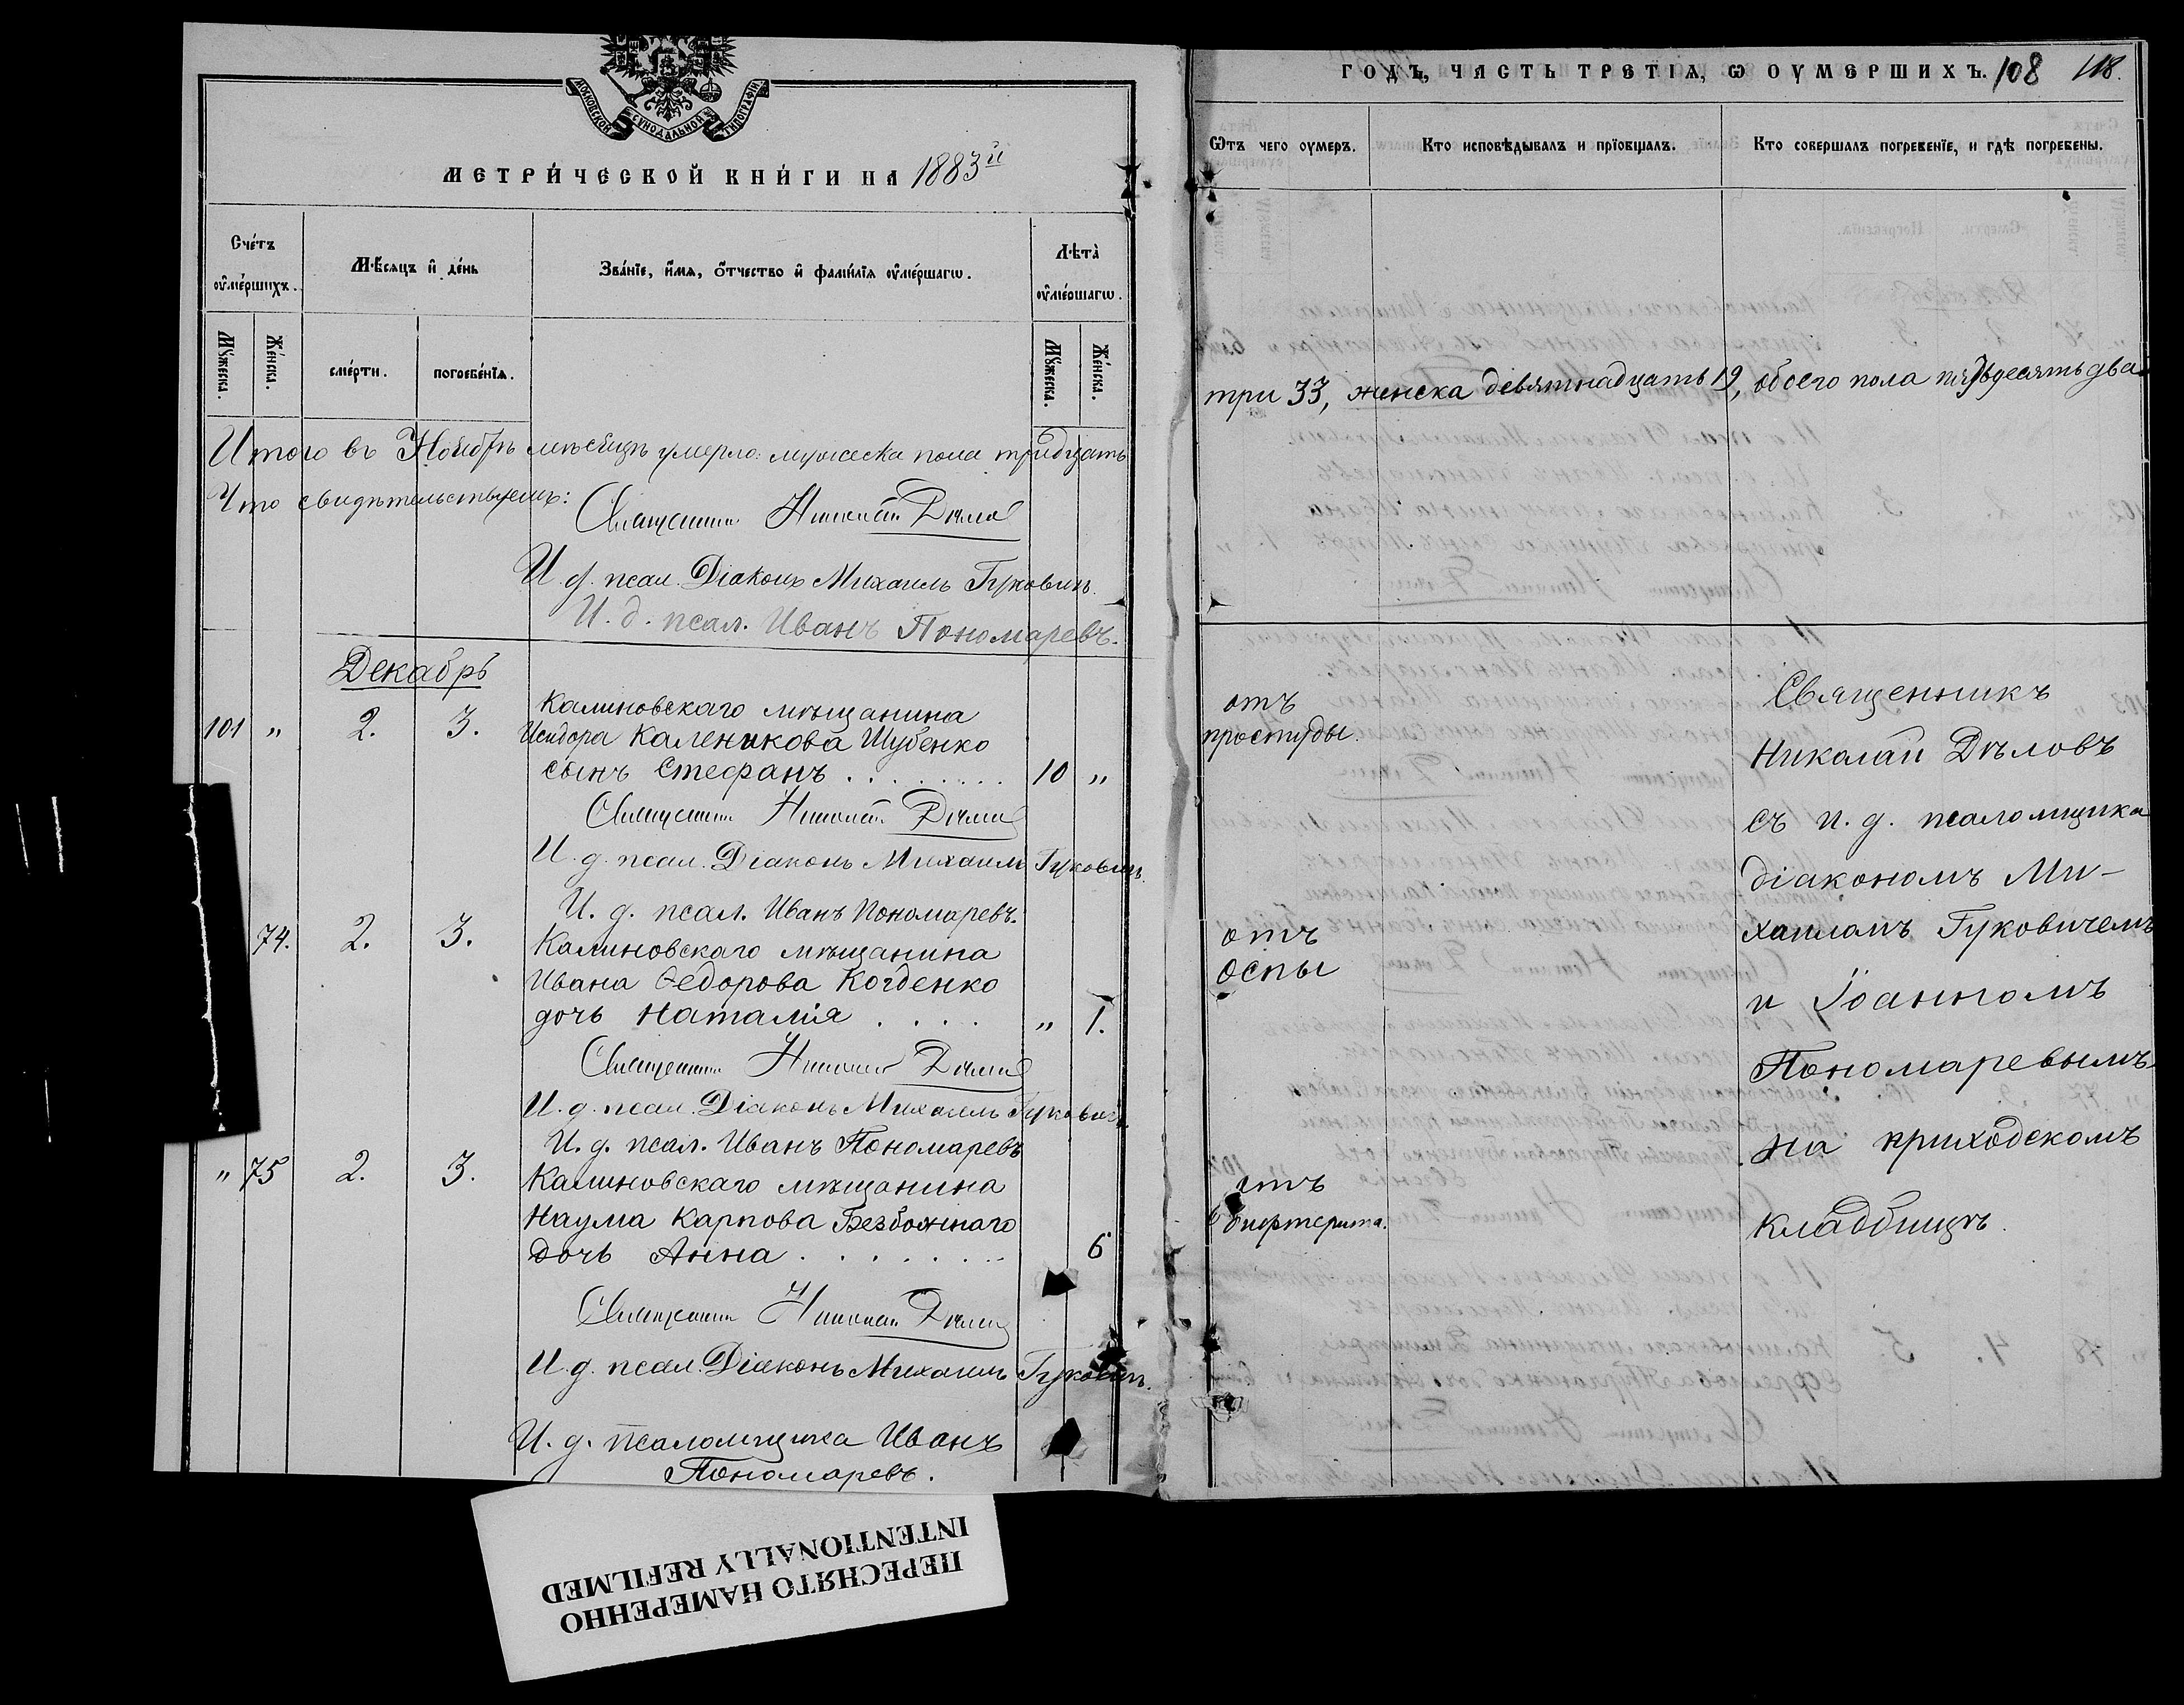 МОСКОВСКОЙ СѴНОДАЛЬНОЙ ТИПОГРАФІИ
МЕТРИ́ЧЕСКОЙ КНИ́ГИ НА 1883й
Сче́тъ ᲂу҆ме́ршихъ.
Мѣ́сяцъ и҆ де́нь
Зва́нїе, и҆́мѧ, ѻ҆́тчество и҆ фами́лїѧ ᲂу҆ме́ршагѡ.
Лѣта̀ ᲂу҆ме́ршагѡ.
Мꙋ́жеска.
Же́нска.
сме́рти.
погребе́нїѧ.
Мꙋ́жеска.
Же́нска.
Итого въ Ноябрѣ мѣсяцѣ умерло: мужеска пола тридцать
Что свидѣтельствуемъ:
Священникъ Николай Дѣловъ
И. д. псал. Діаконъ Михаилъ Гуковичъ.
И. д. псал. Иванъ Пономаревъ.
Декабрь
101 " 2. 3. Калиновскаго мѣщанина
Исидора Каленикова Шубенко
сынъ Стефанъ . . . . . . . . 10 "
Священникъ Николай Дѣловъ
И. д. псал. Діаконъ Михаилъ Гуковичъ.
И. д. псал. Иванъ Пономаревъ.
74. 2. 3. Калиновскаго мѣщанина
Ивана Ѳедорова Когденко
дочь Наталія . . . . " 1.
Священникъ Николай Дѣловъ
И. д. псал. Діаконъ Михаилъ Гуковичъ.
И. д. псал. Иванъ Пономаревъ
" 75 2. 3. Калиновскаго мѣщанина
Наума Карпова Безбожнаго
дочь Анна . . . . . . . 6
Священникъ Николай Дѣловъ
И. д. псал. Діаконъ Михаилъ Гуковичъ.
И. д. псаломщика Иванъ
Пономаревъ.
ГОДЪ, ЧАСТЬ ТРЕТІѦ, Ѡ ОУМЕРШИХЪ. 108 118.
Ѿтъ чего оумеръ.
Кто исповѣдывалъ и прїобщалъ.
Кто совершалъ погребенїе, и гдѣ погребены.
три 33, женска девятнадцать 19, обоего пола пятьдесятъ два
отъ
простуды.
отъ
оспы
отъ
дифтерита.
Священникъ
Николай Дѣловъ
съ и. д. псаломщика
діакономъ Ми-
хаиломъ Гуковичемъ
и Іоанномъ
Пономаревымъ
на приходскомъ
кладбищѣ.
ПЕРЕСНЯТО НАМЕРЕННО
INTENTIONALLY REFILMED